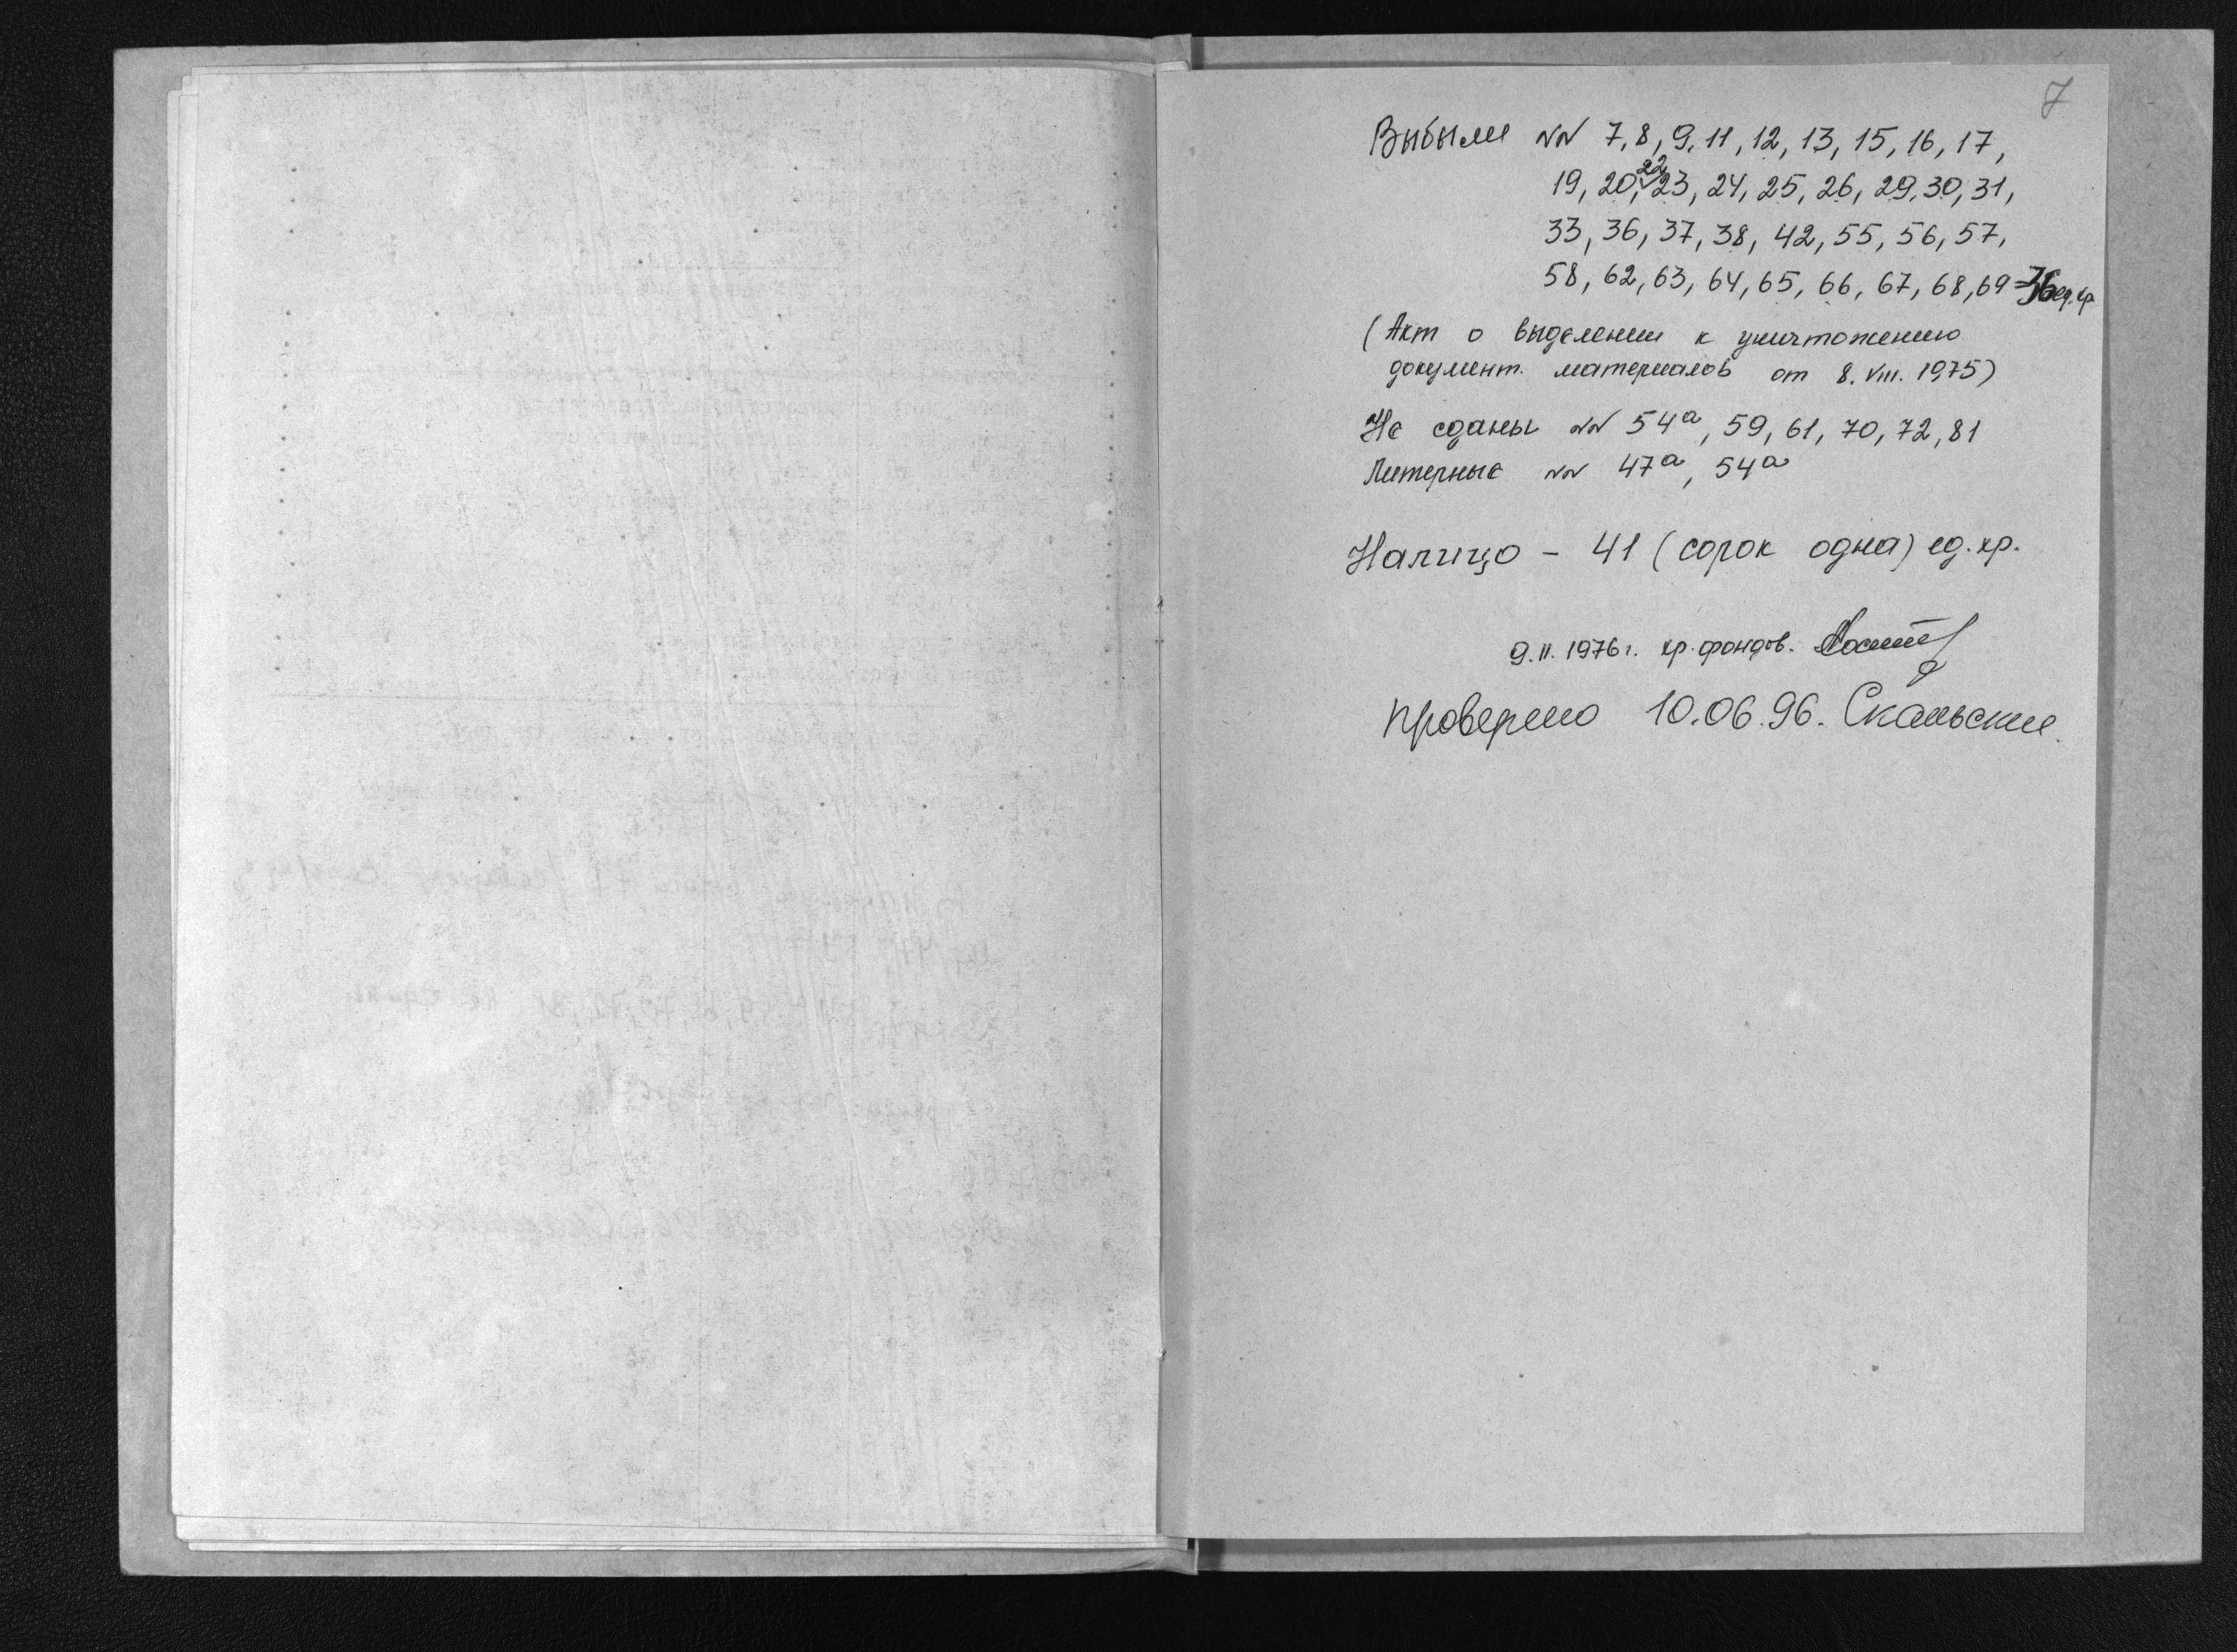 7
Выбыли №№ 7, 8, 9, 11, 12, 13, 15, 16, 17,
19, 20, 22, 23, 24, 25, 26, 29, 30, 31,
33, 36, 37, 38, 42, 55, 56, 57,
58, 62, 63, 64, 65, 66, 67, 68, 69 = 36 ед.хр
(Акт о выделении к уничтожению
документ. материалов от 8.VIII.1975)
Не сданы №№ 54а, 59, 61, 70, 72, 81
Литерные №№ 47а, 54а
Налицо – 41 (сорок одна) ед. хр.
9.II.1976 г. хр. фондов.
Проверено 10.06.96.